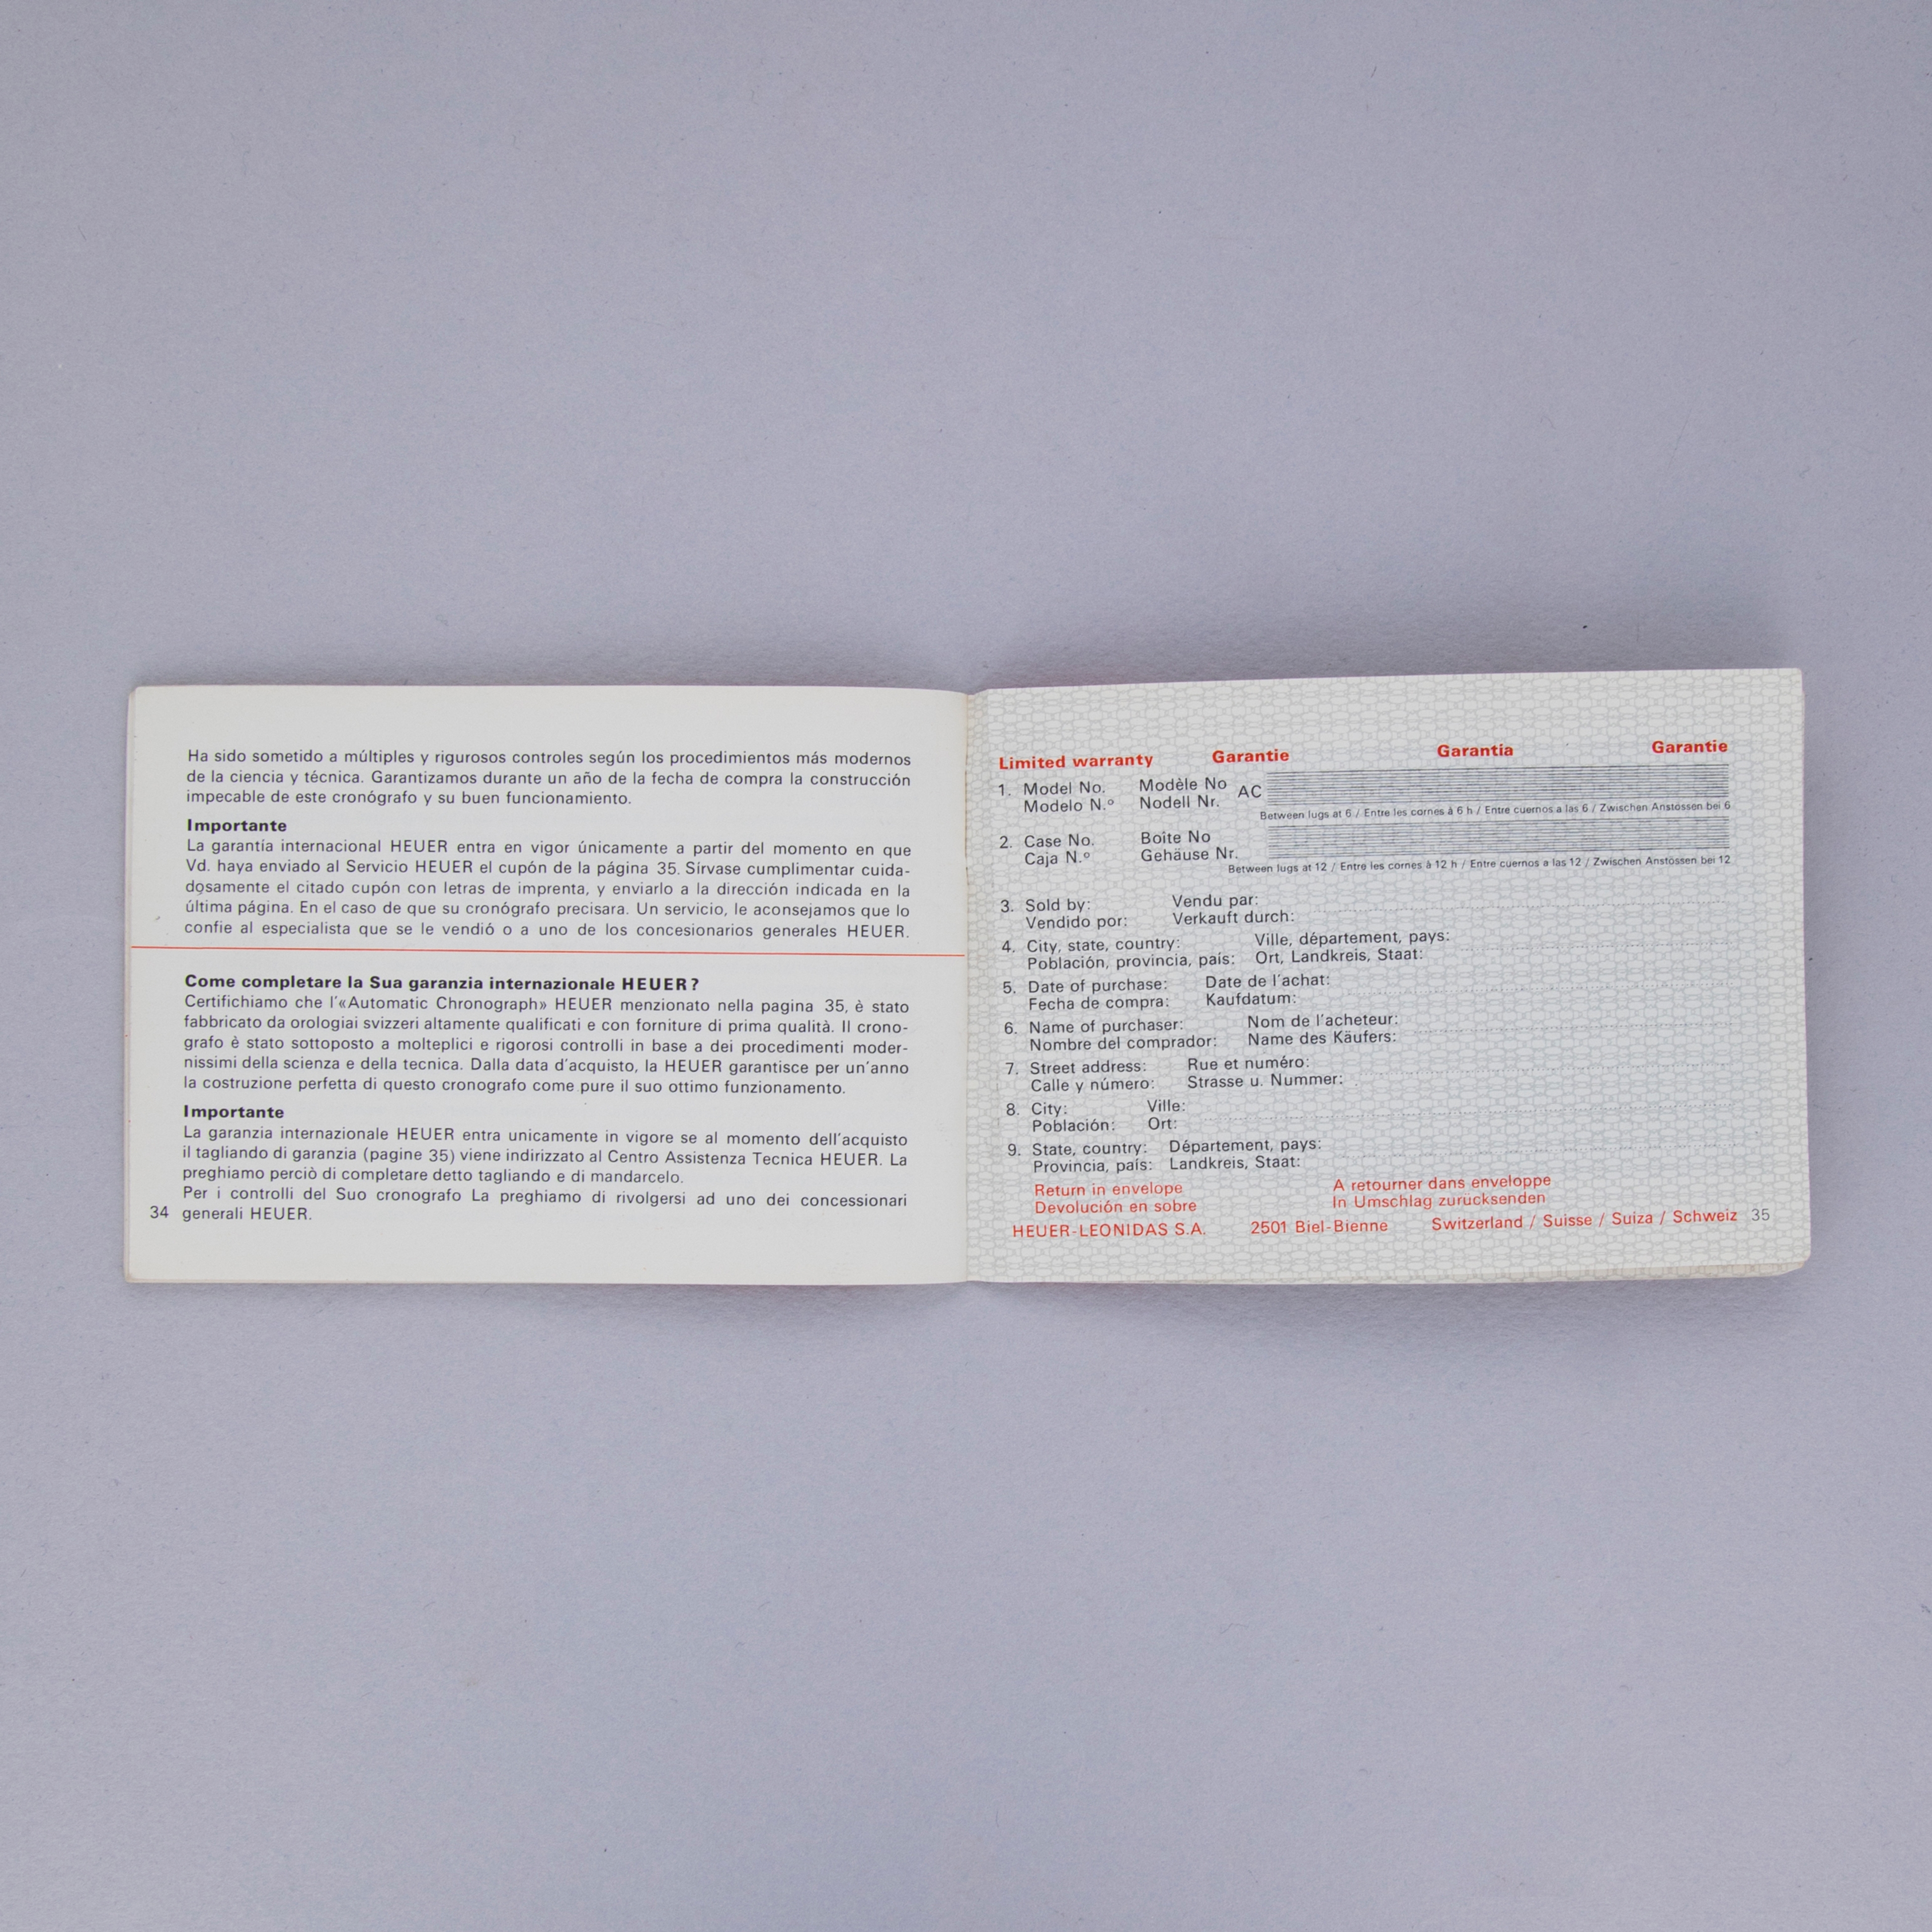 Ha sido sometido a múltiples y rigurosos controles según los procedimientos más modernos
de la ciencia y técnica. Garantizamos durante un año de la fecha de compra la construcción
impecable de este cronógrafo y su buen funcionamiento.
Importante
La garantía internacional HEUER entra en vigor únicamente a partir del momento en que
Vd. haya enviado al Servicio HEUER el cupón de la página 35. Sírvase cumplimentar cuida-
dosamente el citado cupón con letras de imprenta, y enviarlo a la dirección indicada en la
última página. En el caso de que su cronógrafo precisara. Un servicio, le aconsejamos que lo
confie al especialista que se le vendió o a uno de los concesionarios generales HEUER.
Come completare la Sua garanzia internazionale HEUER?
Certifichiamo che l'«Automatic Chronograph» HEUER menzionato nella pagina 35, è stato
fabbricato da orologiai svizzeri altamente qualificati e con forniture di prima qualità. Il crono-
grafo è stato sottoposto a molteplici e rigorosi controlli in base a dei procedimenti moder-
nissimi della scienza e della tecnica. Dalla data d'acquisto, la HEUER garantisce per un'anno
la costruzione perfetta di questo cronografo come pure il suo ottimo funzionamento.
Importante
La garanzia internazionale HEUER entra unicamente in vigore se al momento dell'acquisto
il tagliando di garanzia (pagine 35) viene indirizzato al Centro Assistenza Tecnica HEUER. La
preghiamo perciò di completare detto tagliando e di mandarcelo.
Per i controlli del Suo cronografo La preghiamo di rivolgersi ad uno dei concessionari
34 generali HEUER.
Limited warranty Garantie Garantía Garantie
1. Model No. Modèle No AC
Modelo N.º Nodell Nr.
Between lugs at 6 / Entre les cornes à 6 h / Entre cuernos a las 6 / Zwischen Anstössen bei 6
2. Case No. Boîte No
Caja N.º Gehäuse Nr.
Between lugs at 12 / Entre les cornes à 12 h / Entre cuernos a las 12 / Zwischen Anstössen bei 12
3. Sold by: Vendu par:
Vendido por: Verkauft durch:
4. City, state, country: Ville, département, pays:
Población, provincia, país: Ort, Landkreis, Staat:
5. Date of purchase: Date de l'achat:
Fecha de compra: Kaufdatum:
6. Name of purchaser: Nom de l'acheteur:
Nombre del comprador: Name des Käufers:
7. Street address: Rue et numéro:
Calle y número: Strasse u. Nummer:
8. City: Ville:
Población: Ort:
9. State, country: Département, pays:
Provincia, país: Landkreis, Staat:
Return in envelope A retourner dans enveloppe
Devolución en sobre In Umschlag zurücksenden
HEUER-LEONIDAS S.A. 2501 Biel-Bienne Switzerland / Suisse / Suiza / Schweiz 35